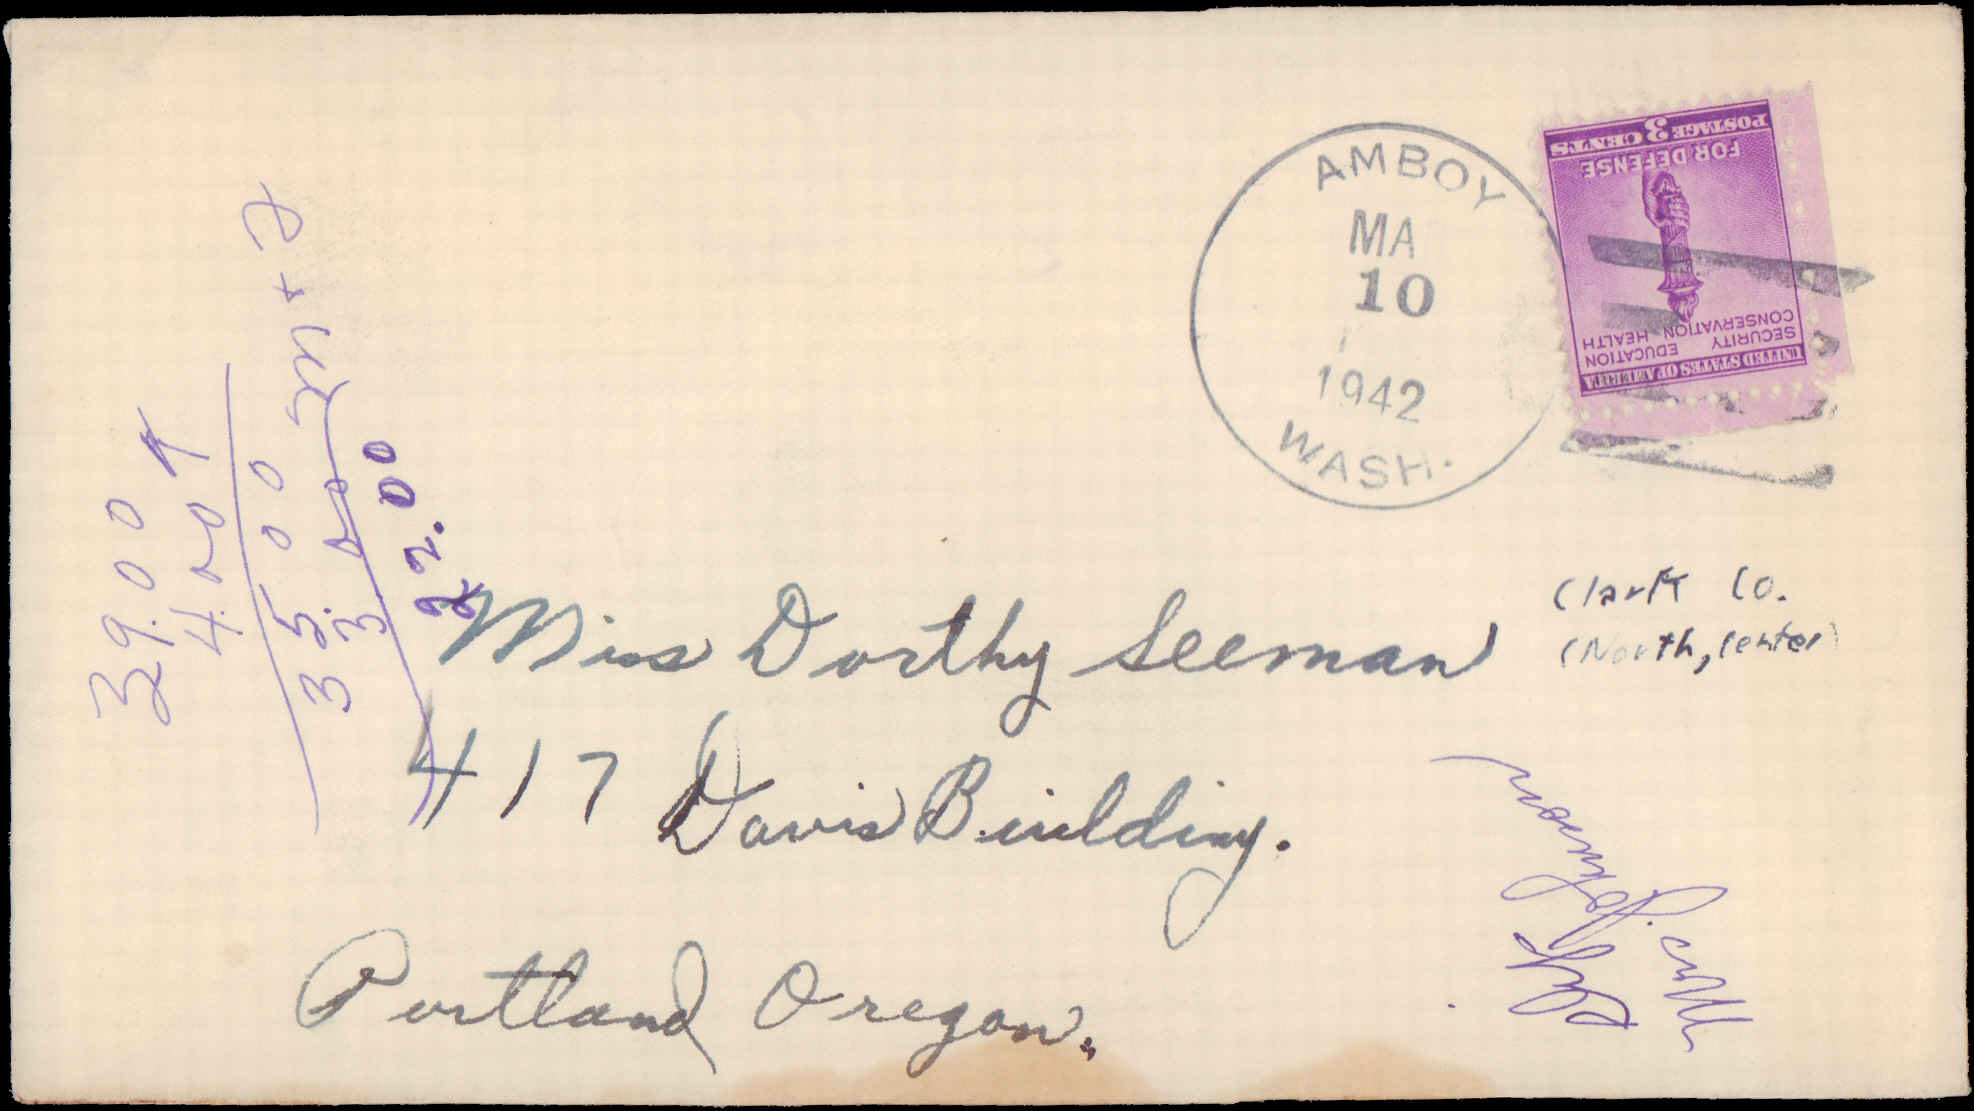 AMBOY
MA
10
1942
WASH.
UNITED STATES OF AMERICA
SECURITY EDUCATION
CONSERVATION HEALTH
FOR DEFENSE
POSTAGE 3 CENTS
Clark Co.
(North, Center)
Miss Dorthy Seeman
417 Davis Building.
Portland Oregon.
39.00
35.00
22.00
Mr.
Johnson